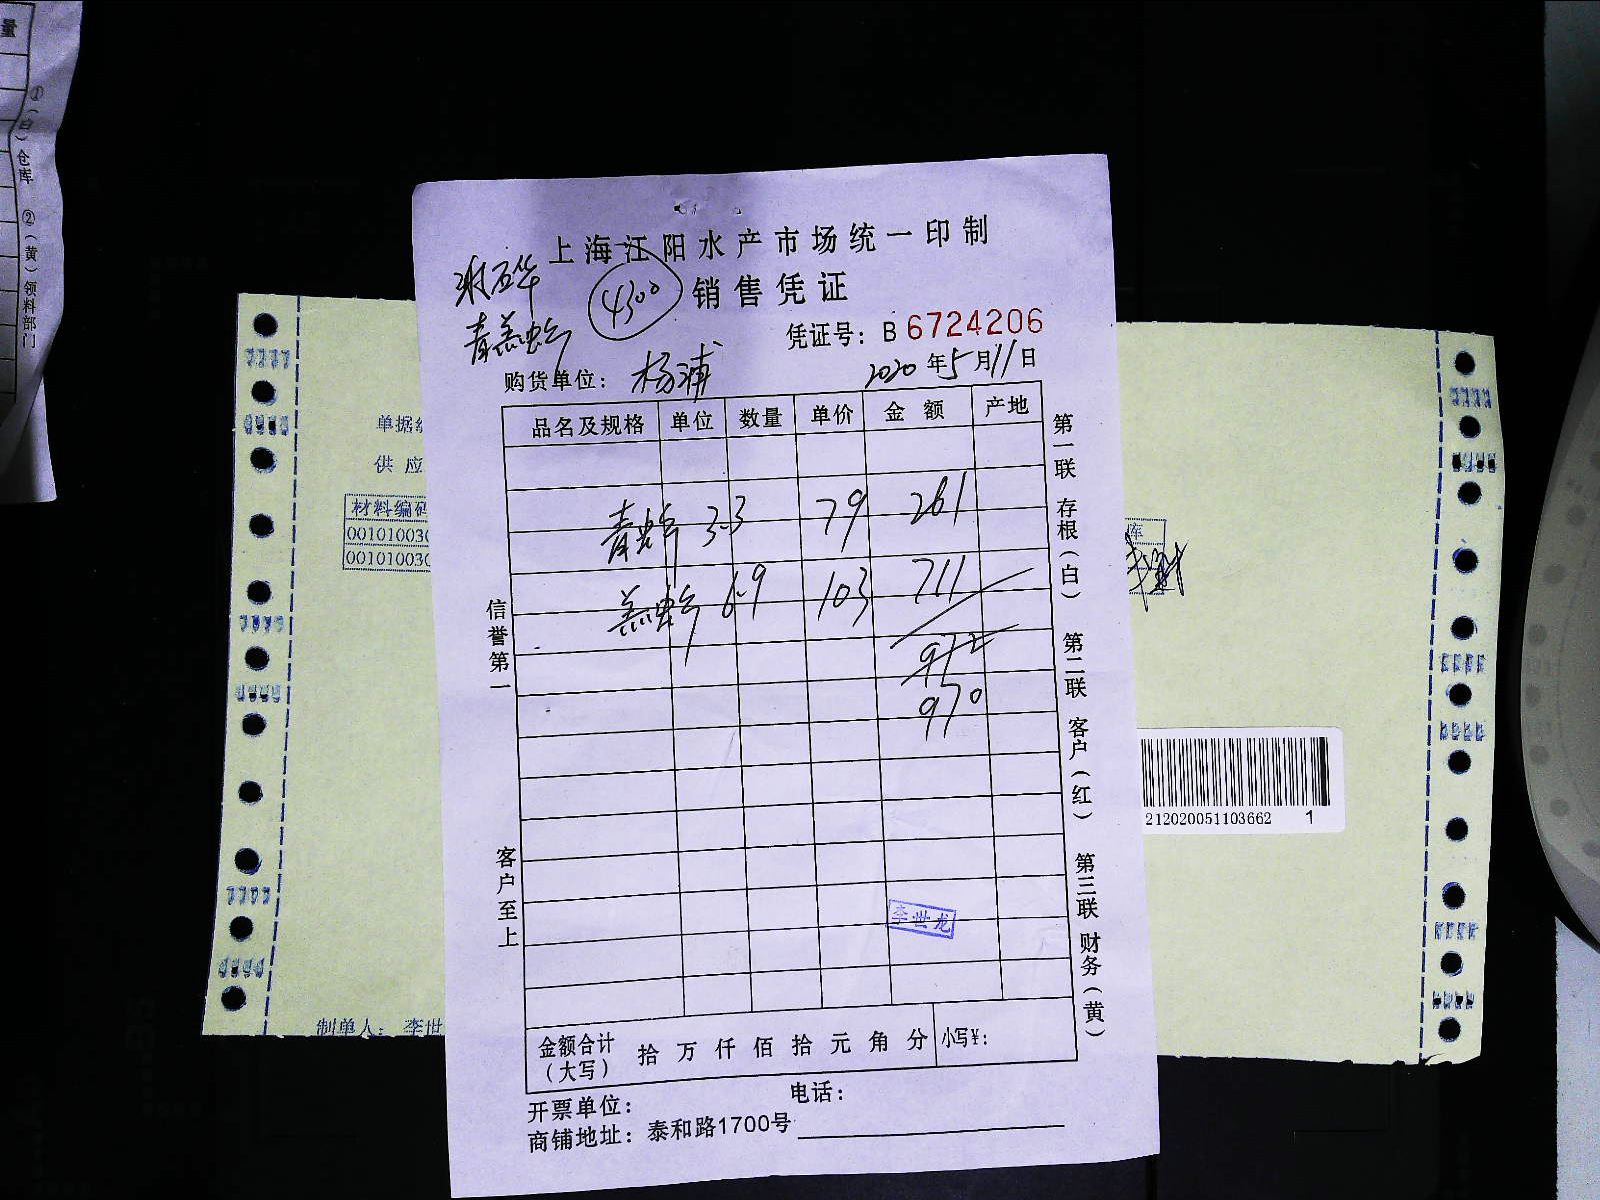 量
①(白)仓库 ②(黄)领料部门
上海江阳水产市场统一印制
4300
销售凭证
凭证号：B 6724206
购货单位：杨浦
2020年5月11日
品名及规格 单位 数量 单价 金额 产地
青蟹 3.3 79 261
羔蟹 6.9 103 711
972
970
信誉第一
客户至上
第一联 存根(白)
第二联 客户(红)
第三联 财务(黄)
李世龙
金额合计(大写) 拾万仟佰拾元角分 小写¥：
开票单位：
电话：
商铺地址：泰和路1700号
单据
供应
材料编码
00101003
00101003
库
212020051103662 1
制单人：李世